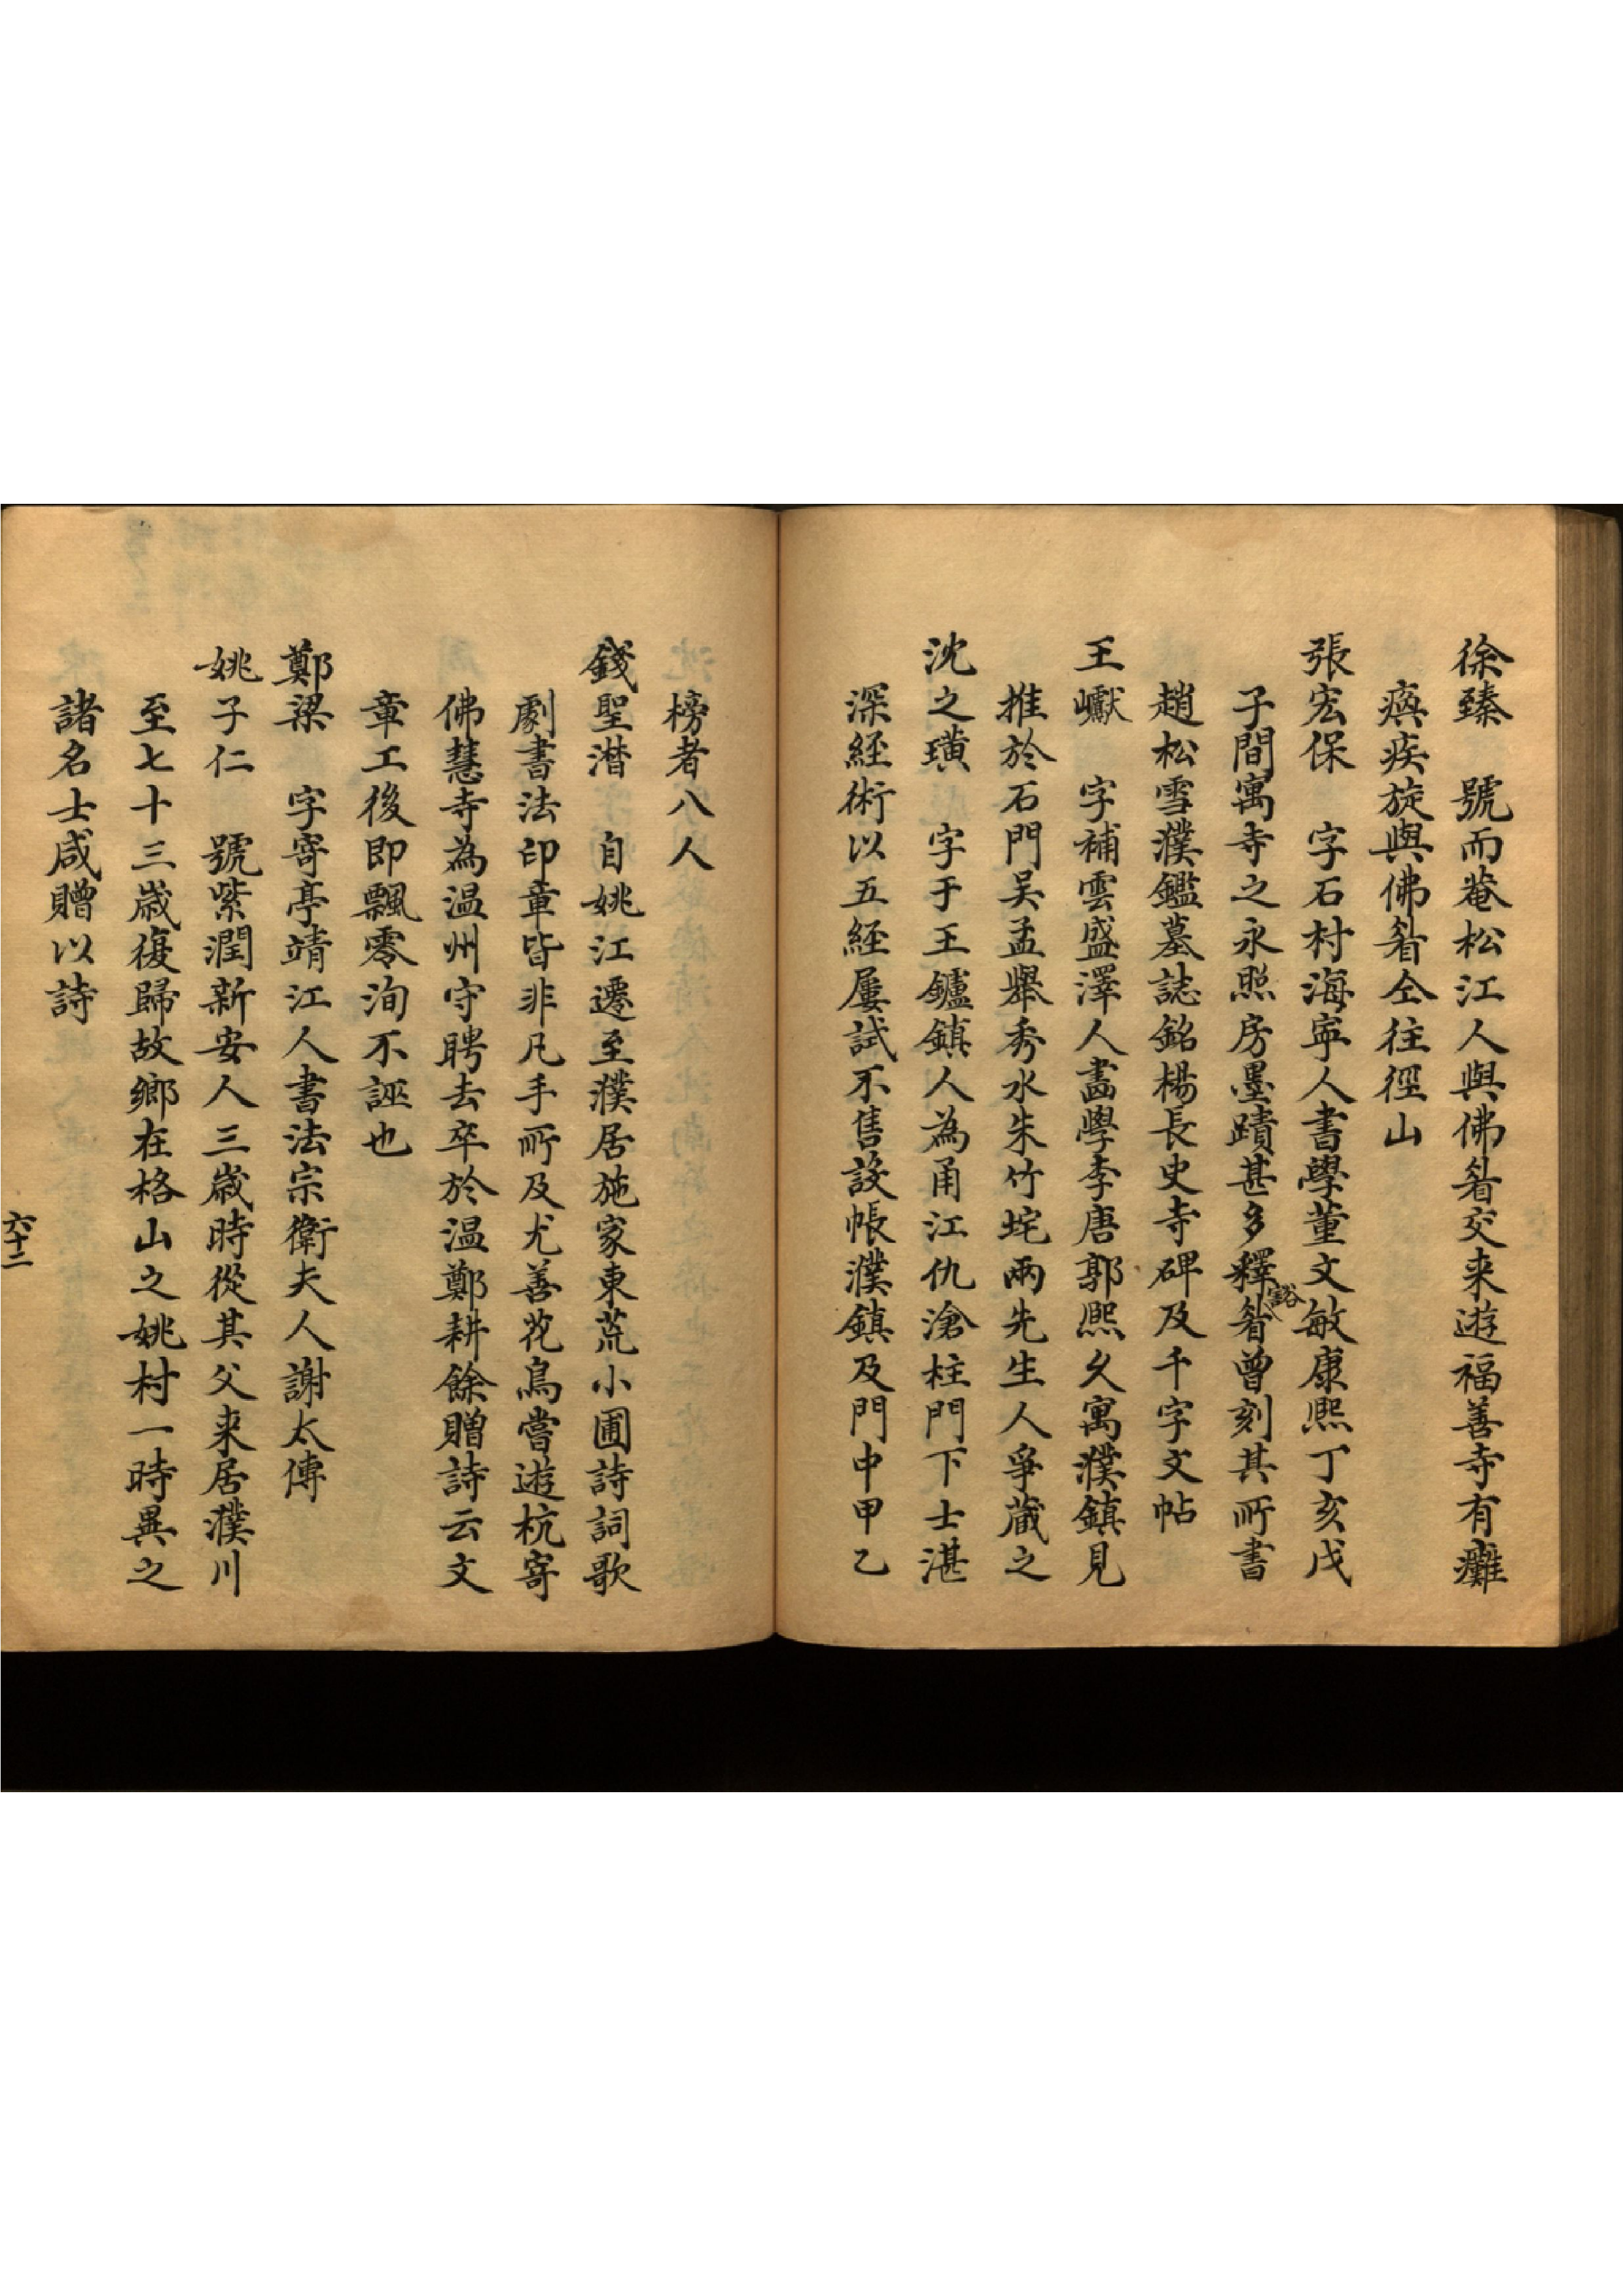 徐臻　號而菴松江人與佛眘交来遊福善寺有癱
瘓疾旋與佛眘仝往徑山
張宏保　字石村海寧人書學董文敏康熙丁亥戊
子間寓寺之永照房墨蹟甚多釋眘曾刻其所書
谿
趙松雪濮鑑墓誌銘楊長史寺碑及千字文帖
王巘　字補雲盛澤人畵學李唐郭熙久寓濮鎮見
推於石門吴孟舉秀水朱竹垞兩先生人爭蔵之
沈之璜　字于王鑪鎮人為甬江仇滄柱門下士湛
深経術以五経屢試不售設帳濮鎮及門中甲乙
榜者八人
錢聖潛　自姚江遷至濮居施家東荒小圃詩詞歌
劇書法印章皆非凡手所及尤善花鳥嘗遊杭寄
佛慧寺為温州守聘去卒於温鄭耕餘贈詩云文
章工後即飄零洵不誣也
鄭梁　字寄亭靖江人書法宗衛夫人謝太傅
姚子仁　號紫潤新安人三歲時從其父来居濮川
至七十三歲復歸故鄉在格山之姚村一時異之
諸名士咸贈以詩
六十二